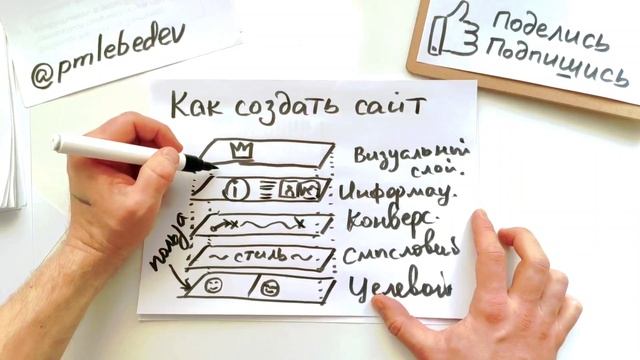 @pmlebedev
Поделись
Подпишись
Как создать сайт
Визуальный
слой.
i
Информац.
Конверс.
польза
~ стиль ~
Смысловий
Целевой